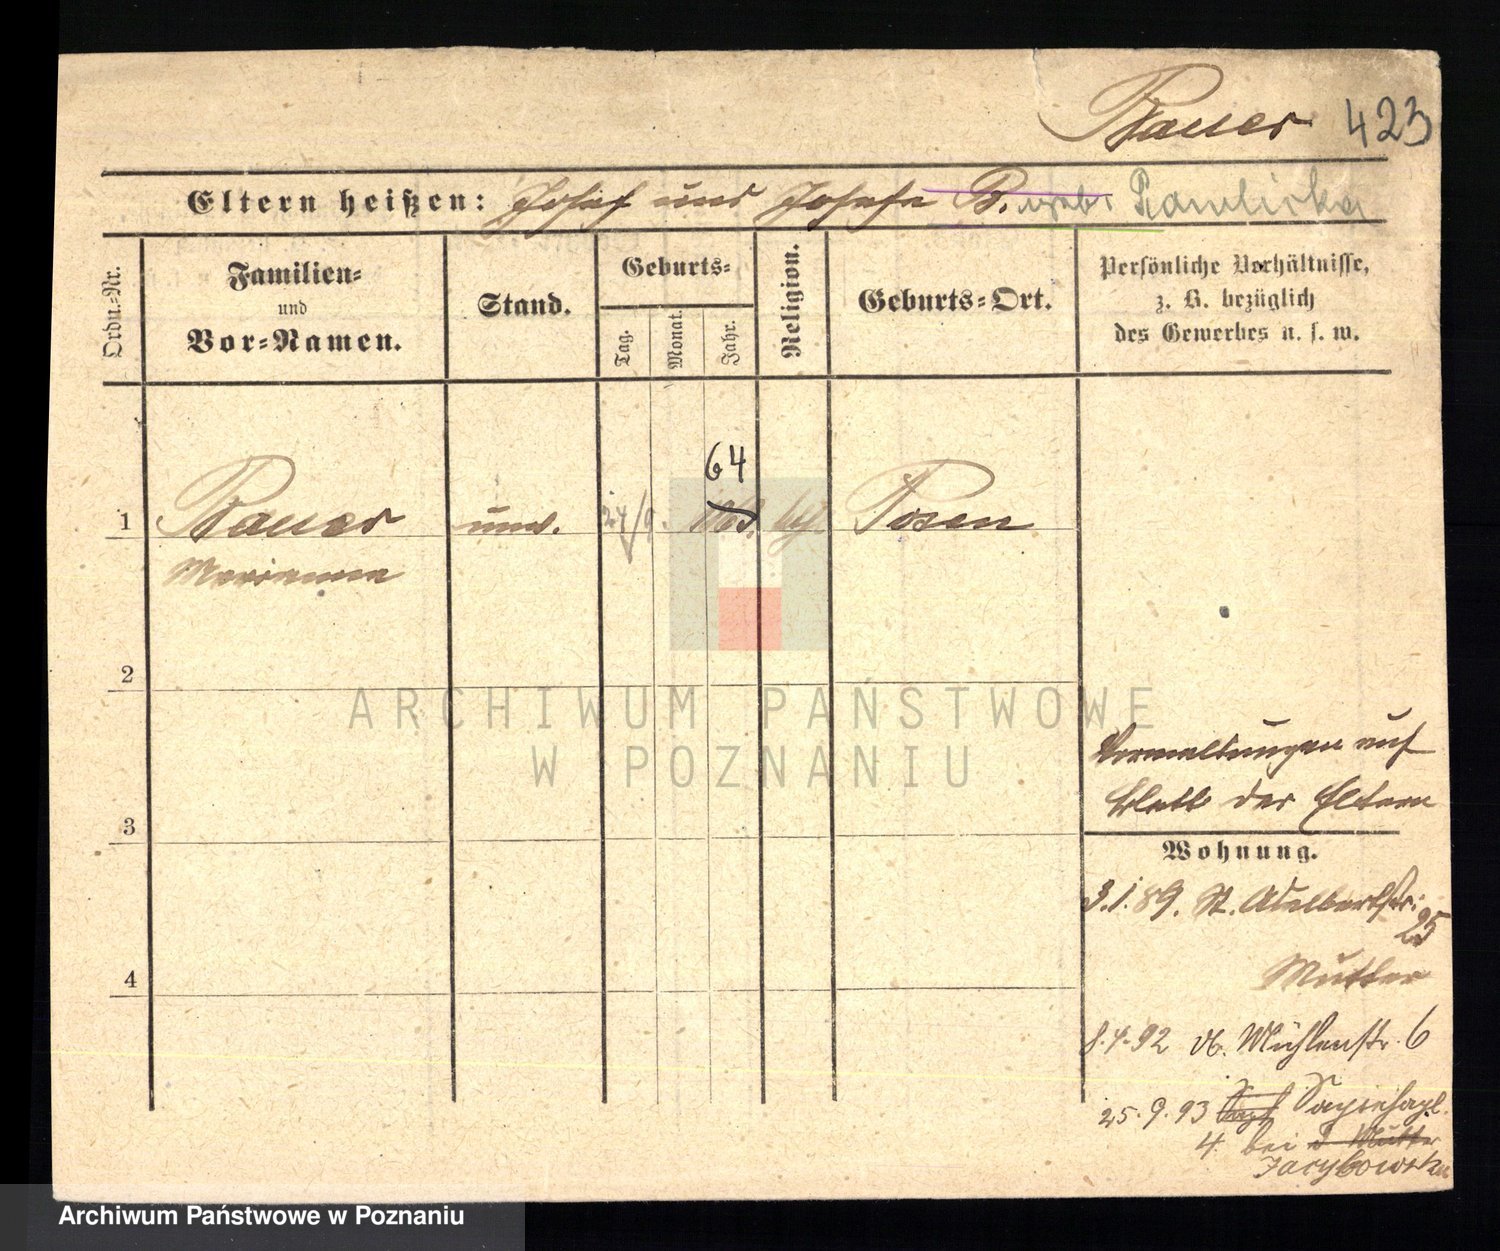 Bauer 423
Eltern heißen: Josef und Josefa B. geb. Pawlicka
Ordn.-Nr.
Familien-
und
Vor-Namen.
Stand.
Geburts-
Tag.
Monat.
Jahr.
Religion.
Geburts-Ort.
Persönliche Verhältnisse,
z. B. bezüglich
des Gewerbes u. s. w.
64
1 Bauer unv. 24/9. 1863. kth. Posen
Marianna
2
3
4
Vermeldungen auf
Blatt der Eltern
Wohnung.
3.1.89. St. Adalbertstr.
25
Mutter
8.4.92 Mühlenstr. 6
25.9.93 Sapiehapl.
4. bei d Mutter
ARCHIWUM PAŃSTWOWE
W POZNANIU
Archiwum Państwowe w Poznaniu